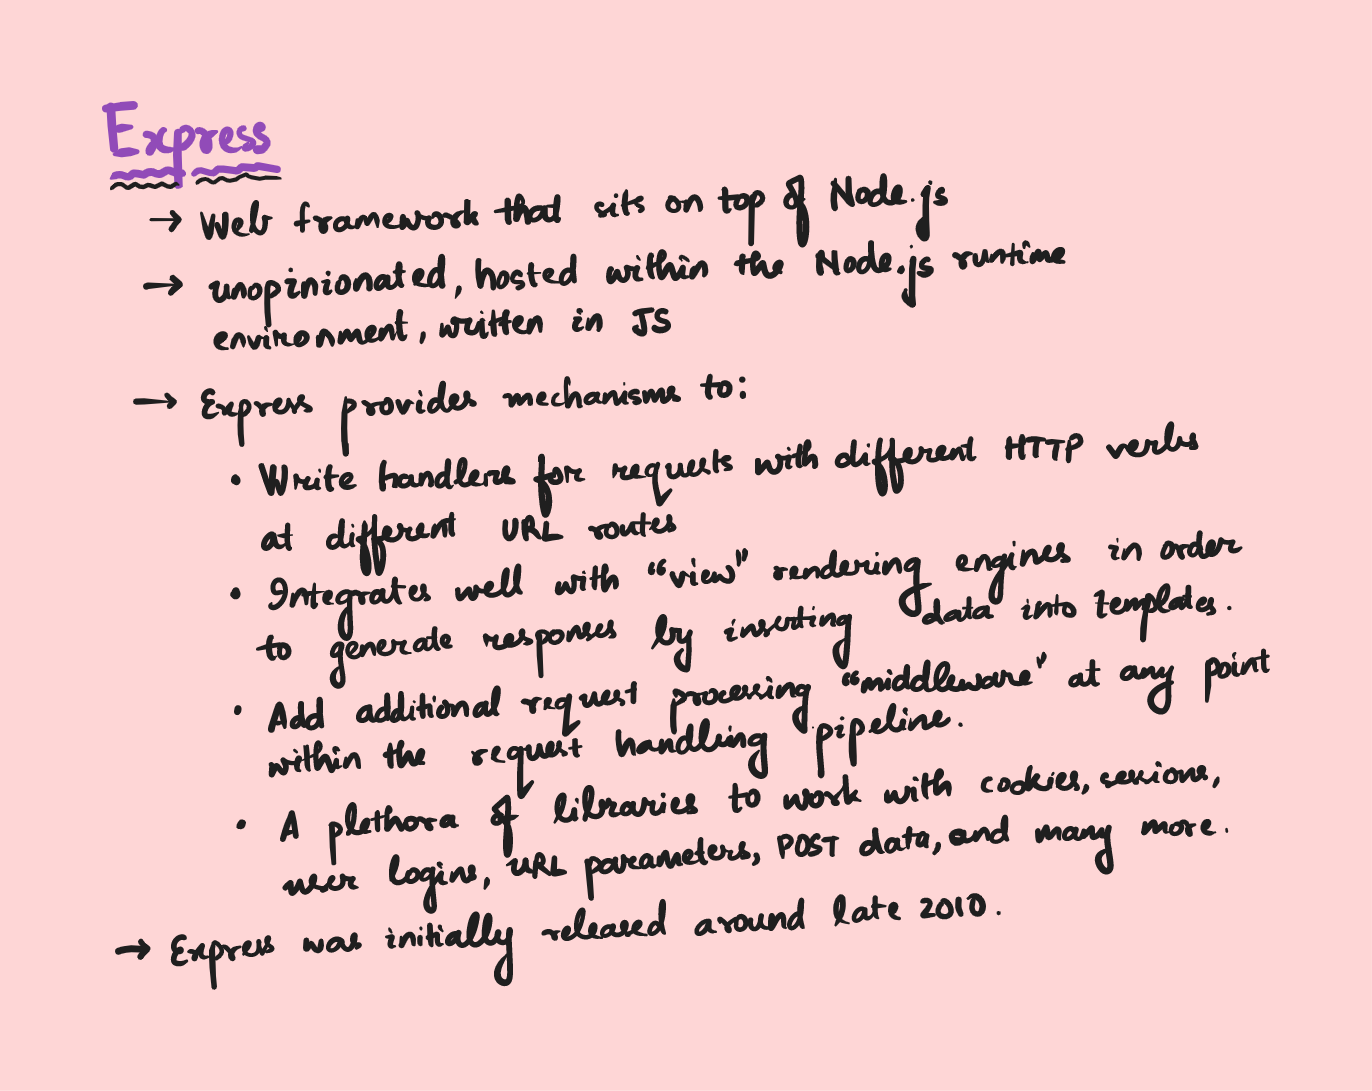 Express
→ Web framework that sits on top of Node.js
→ unopinionated, hosted within the Node.js runtime
environment, written in JS
→ Express provides mechanisms to:
• Write handlers for requests with different HTTP verbs
at different URL routes
• Integrates well with “view” rendering engines in order
to generate responses by inserting data into templates.
• Add additional request processing “middleware” at any point
within the request handling pipeline.
• A plethora of libraries to work with cookies, sessions,
user logins, URL parameters, POST data, and many more.
→ Express was initially released around late 2010.